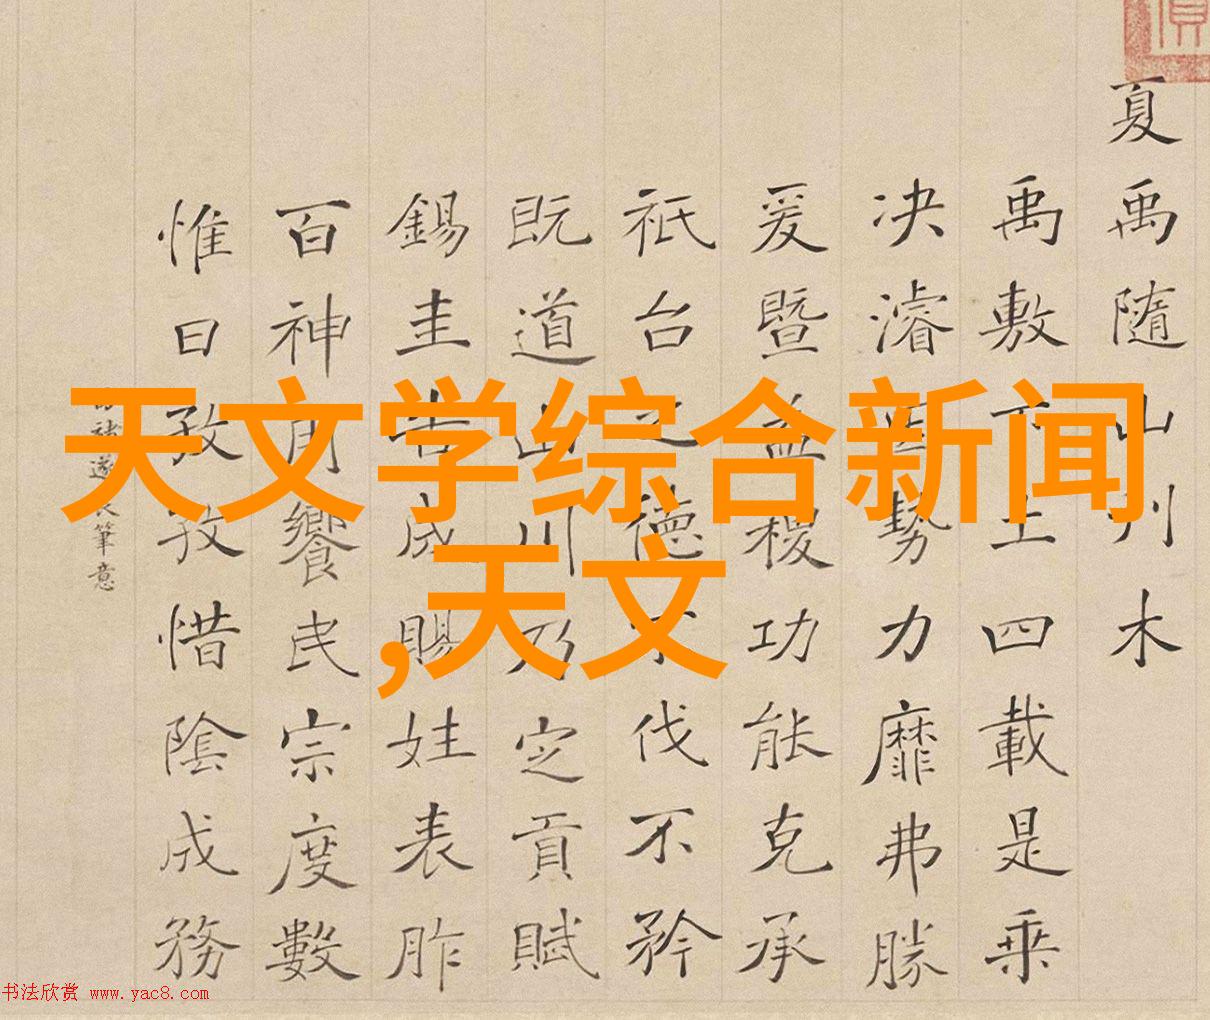 夏禹隨山刋木
禹敷下土四載是乘
决濬因勢力靡弗勝
爰暨益稷功能克承
祇台之德不伐不矜
既道山川乃定貢賦
錫圭告成賜姓表胙
百神用饗民宗度數
惟日孜孜惜陰成務
褚遂良筆意
天文学综合新闻
,天文
书法欣赏 www.yac8.com